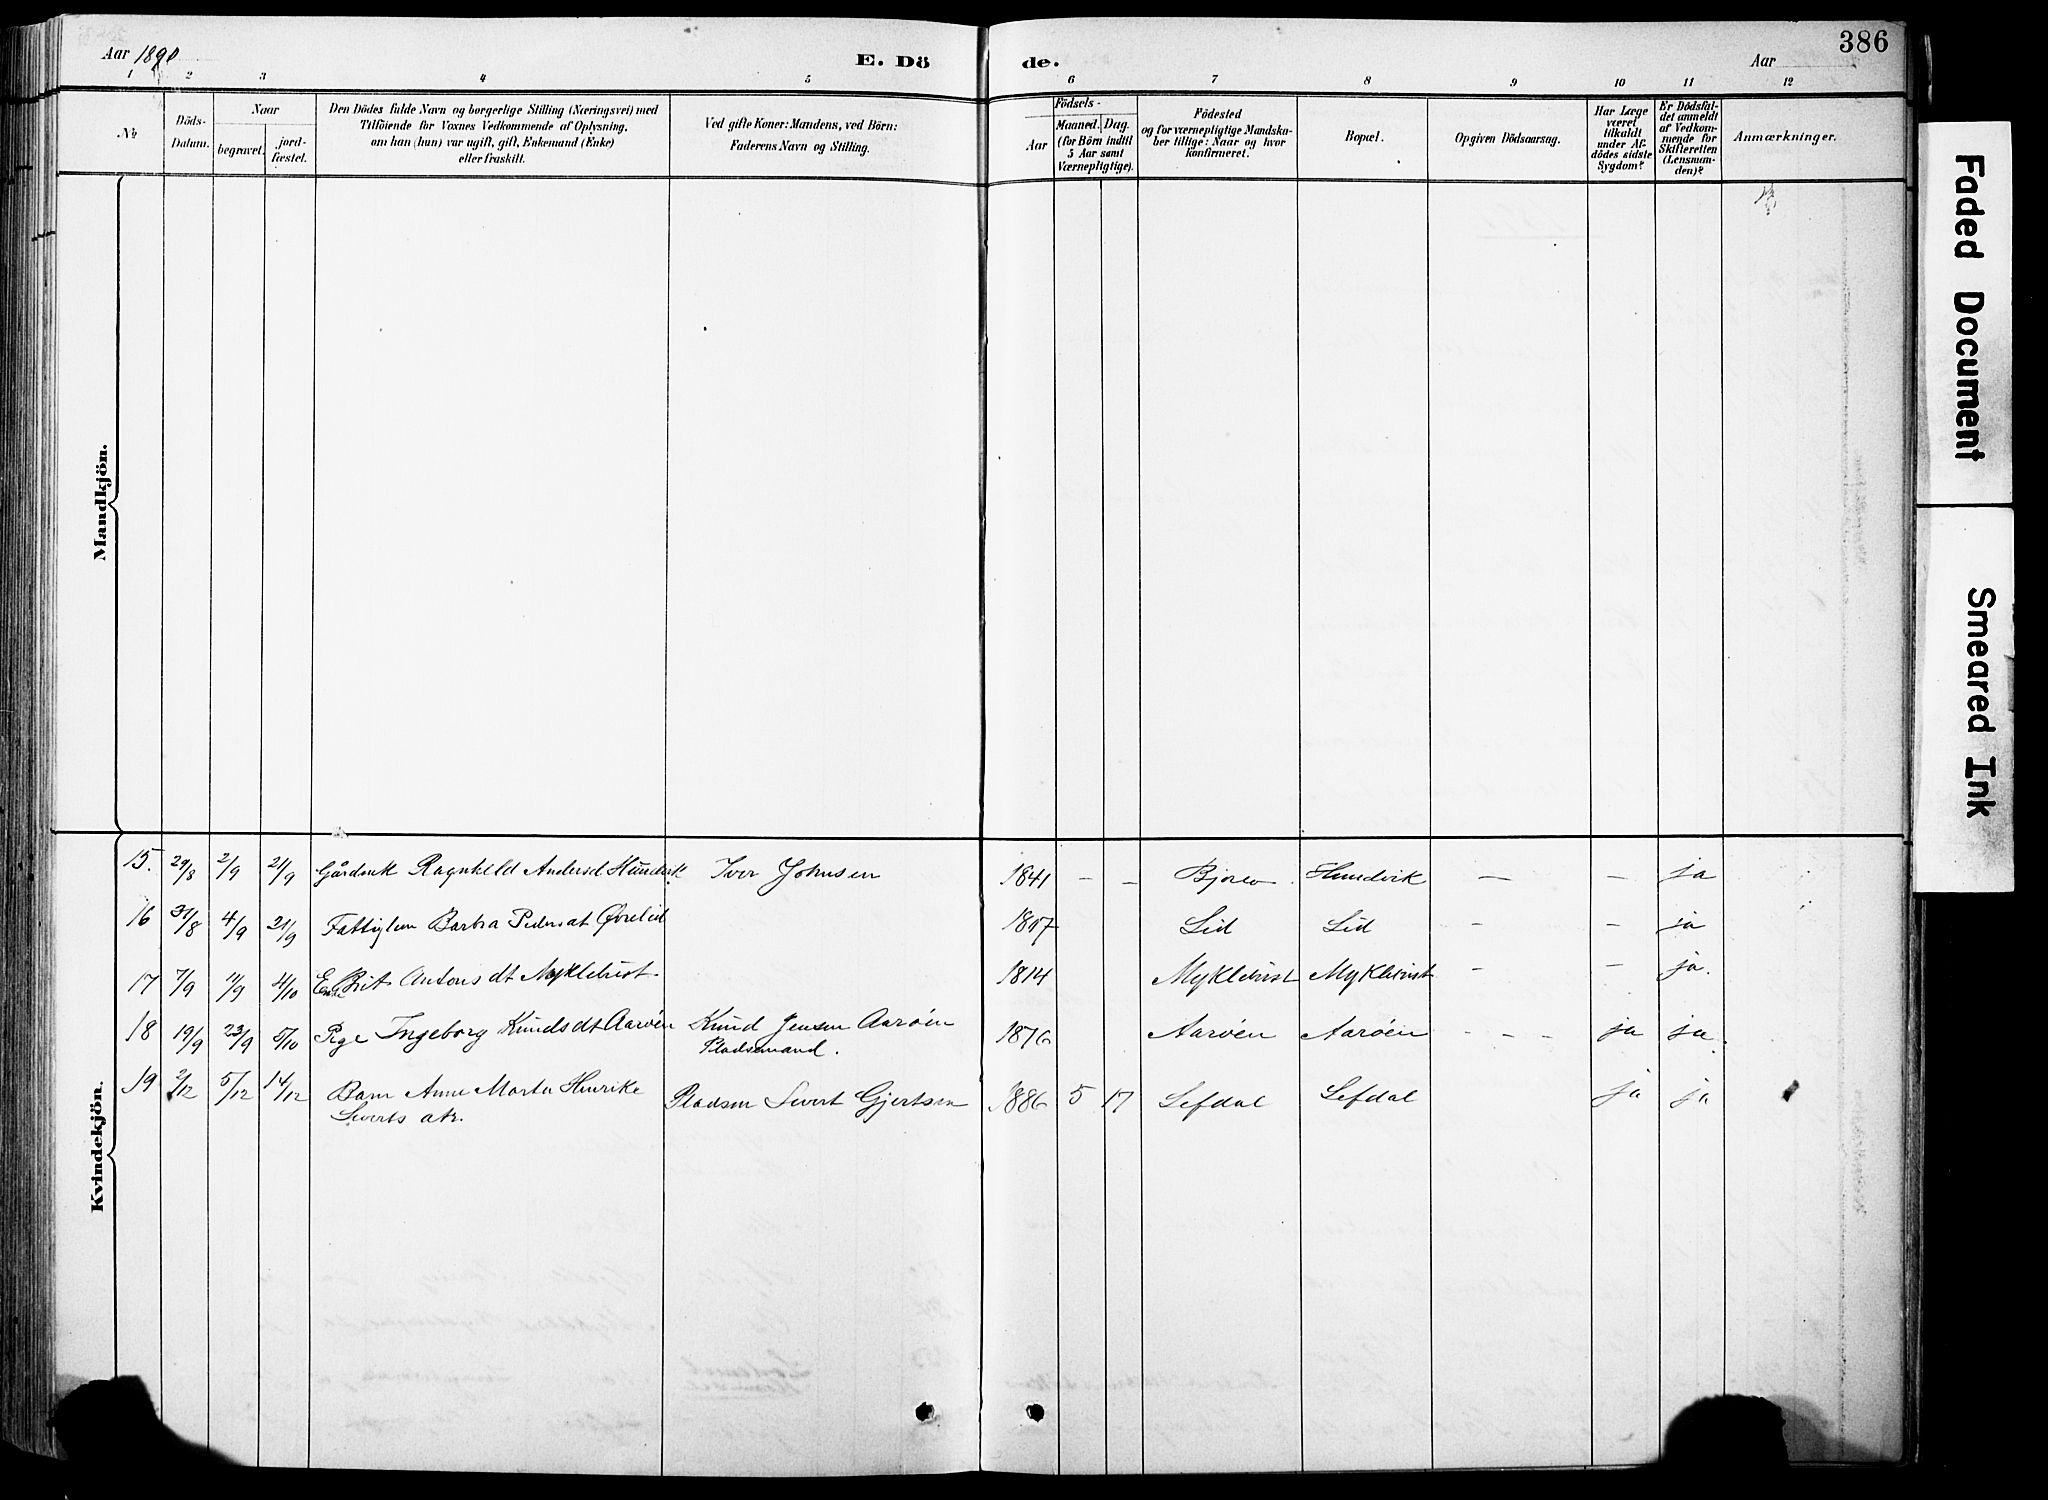 Aar 1890
E. Dö
de.
Aar
386
1 2 3 4 5 6 7 8 9 10 11 12
№
Döds-Datum.
Naar
begravet.
jord-fæstet.
Den Dödes fulde Navn og borgerlige Stilling (Næringsvei) med
Tilföiende for Voxnes Vedkommende af Oplysning,
om han (hun) var ugift, gift, Enkemand (Enke)
eller fraskilt.
Ved gifte Koner: Mandens, ved Börn:
Faderens Navn og Stilling.
Födsels-
Aar
Maaned. Dag.
(for Börn indtil
5 Aar samt
Værnepligtige).
Födested
og for værnepligtige Mandska-
ber tillige: Naar og hvor
konfirmeret.
Bopæl.
Opgiven Dödsaarsag.
Har Læge
været
tilkaldt
under Af-
dödes sidste
Sygdom?
Er Dödsfal-
det anmeldt
af Vedkom-
mende for
Skifteretten
(Lensman-
den)?
Anmærkninger.
Mandkjön.
Kvindekjön.
15. 29/8 2/9 21/9 Gårdmk Ragnhild Andersd Hundvik Iver Johnsen 1841 – – Bjorlo Hundvik – – ja
16 31/8 4/9 21/9 Fattiglem Barbra Pedersdt Øvrelid 1817 Lid Lid – – ja
17 7/9 11/9 4/10 Enke Brit Antonsdt Myklebust 1814 Myklebust Myklebust – – ja.
18 19/9 23/9 5/10 Pige Ingeborg Knudsdt Aarøen Knud Jensen Aarøen 1876 Aarøen Aarøen – – – ja ja.
Pladsmand.
19 2/12 5/12 14/12 Barn Anne Marta Henrike Pladsm Sivert Gjertsen 1886 5 17 Lefdal Lefdal ja ja
Siverts dtr.
Faded Document
Smeared Ink